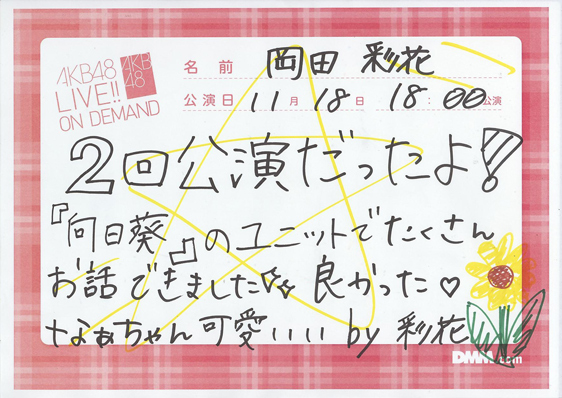 AKB48
LIVE!!
ON DEMAND
AKB
48
名前 岡田 彩花
公演日 11月18日 18:00公演
2回公演だったよ!
『向日葵』のユニットでたくさん
お話できました 良かった♡
なぁちゃん可愛いいい by 彩花
DMM.com